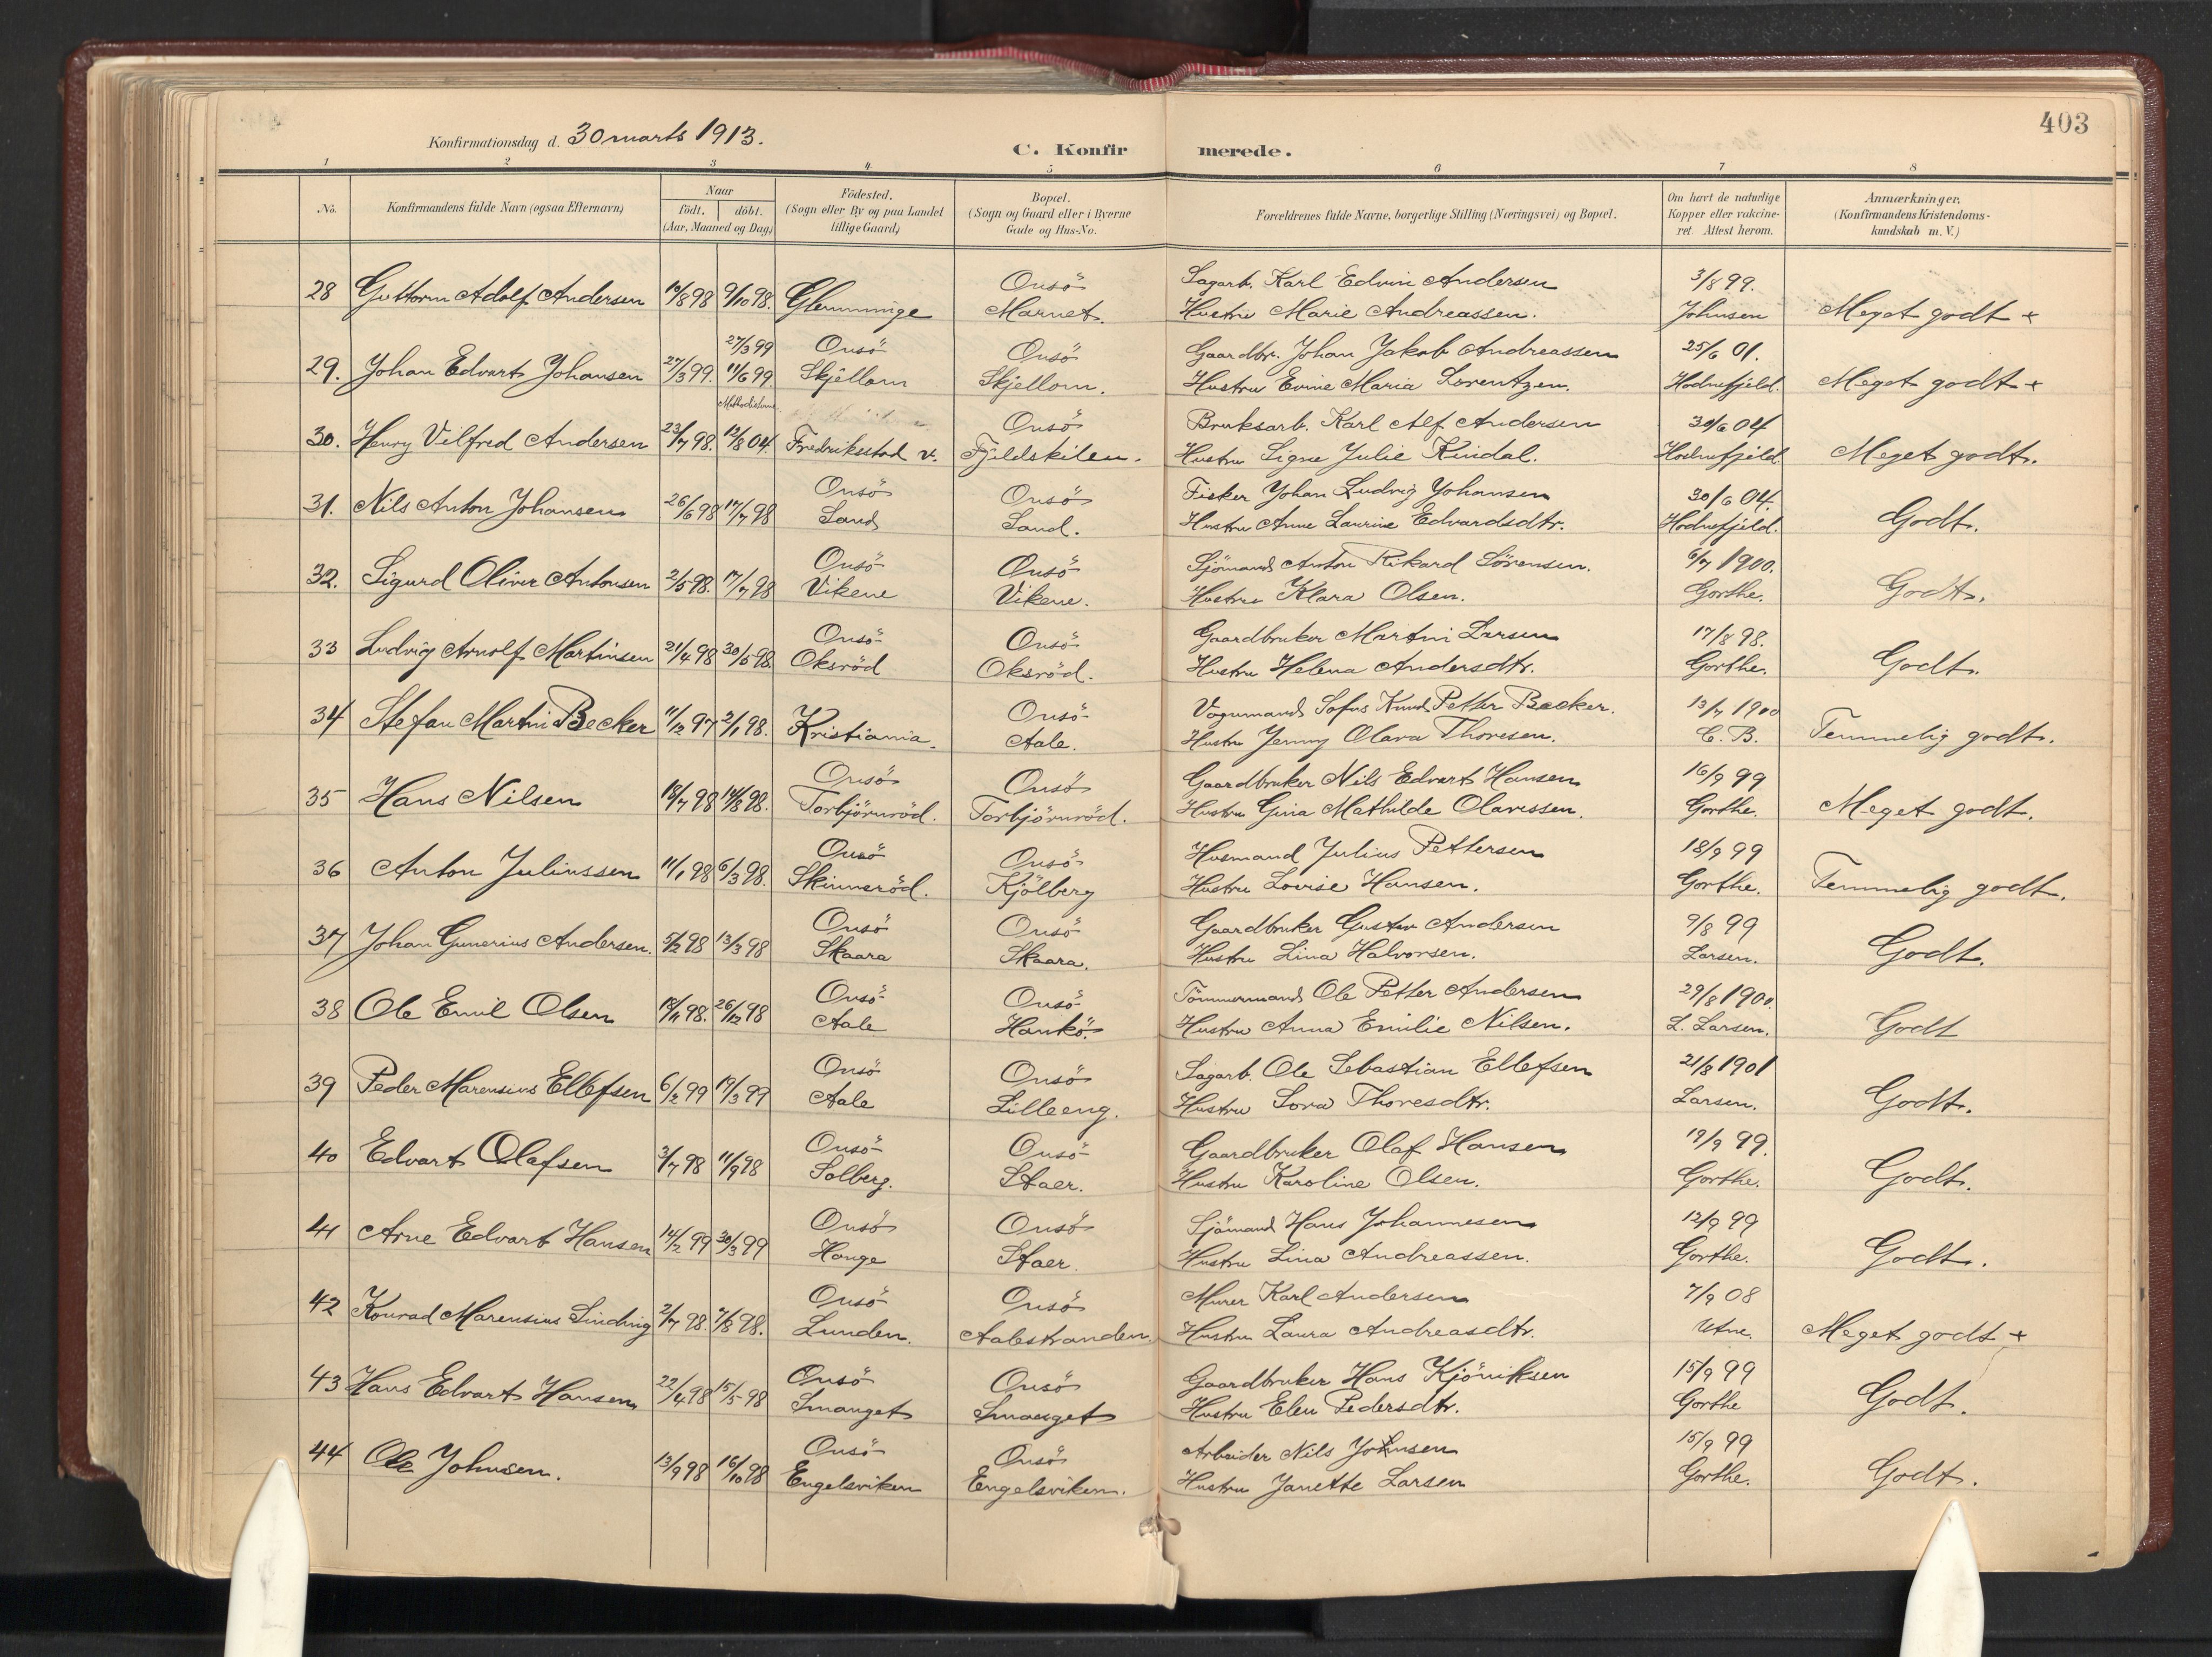 403
Konfirmationsdag d. 30 marts 1913.
C. Konfirmerede.
1 2 3 4 5 6 7 8
No.
Konfirmandens fulde Navn (ogsaa Efternavn)
Naar
født. døbt.
(Aar, Maaned og Dag)
Födested.
(Sogn eller By og paa Landet
tillige Gaard)
Bopæl.
(Sogn og Gaard eller i Byerne
Gade og Hus-No.
Forældrenes fulde Navne, borgerlige Stilling (Næringsvei) og Bopæl.
Om havt de naturlige
Kopper eller vakcine-
ret. Attest herom.
Anmærkninger.
(Konfirmandens Kristendoms-
kundskab m. V.)
Onsö Sagarb. Karl Edvin Andersen 3/8 99.
28 Guttorm Adolf Andersen 10/8 98 9/10 98. Glemminge
Marnet. Hustru Marie Andreassen. Johnsen Meget godt +
27/3 99 Onsö Onsö Gaardbr. Johan Jakob Andreassen 25/6 01.
29. Johan Edvart Johansen 27/3 99. 11/6 99. Skjellom Skjellom. Hustru Evine Maria Lorentzen. Hodnefjeld. Meget godt +
Methodisterne
Onsö Bruksarb. Karl Alf Andersen 30/6 04
30. Henry Vilfred Andersen 23/7 98. 12/8 04. Fredriksstad v. Fjeldskilen. Hustru Signe Julie Kindal. Hodnefjeld. Meget godt.
Onsö Onsö Fisker Johan Ludvig Johansen 30/6 04.
31. Nils Anton Johansen 26/6 98 17/7 98 Sand Sand. Hustru Anne Laurine Edvardsdtr. Hodnefjeld. Godt.
Onsö Onsö Sjömand Anton Rikard Sörensen. 6/7 1900.
32. Sigurd Oliver Antonsen 2/5 98. 17/7 98 Vikene Vikene. Hustru Klara Olsen. Gorthe. Godt.
Onsö Onsö Gaardbruker Martin Larsen 17/8 98.
33 Ludvig Arnolf Martinsen 21/4 98 30/5 98 Oksröd Oksröd. Hustru Helena Andersdtr. Gorthe. Godt.
Onsö Vognmand Sofus Knud Petter Becker. 13/7 1900
34 Stefan Martin Becker 11/12 97 2/1 98. Kristiania. Aale. Hustru Jenny Olava Thoresen. C. B. Temmelig godt.
Onsö Onsö Gaardbruker Nils Edvart Hansen 16/9 99
35 Hans Nilsen 18/7 98 14/8 98. Torbjörnröd. Torbjörnröd. Hustru Gina Mathilde Olavessen. Gorthe. Meget godt.
Onsö Onsö Husmand Julius Pettersen 18/9 99
36 Anton Juliussen 11/1 98 6/3 98. Skinneröd. Kjölberg Hustru Lovise Hansen. Gorthe. Temmelig godt.
Onsö Onsö Gaardbruker Gustav Andersen 9/8 99
37 Johan Gunerius Andersen. 5/2 98 13/3 98 Skaara Skaara. Hustru Lina Halvorsen. Larsen. Godt.
Onsö Onsö Tömmermand Ole Petter Andersen 29/8 1900.
38 Ole Emil Olsen 18/11 98. 26/12 98 Aale Hankö. Hustru Anna Emilie Nilsen. L. Larsen. Godt
Onsö Onsö Sagarb. Ole Sebastian Ellefsen 21/8 1901
39 Peder Marensius Ellefsen 6/2 99 19/3 99 Aale Lilleeng. Hustru Lova Thoresdtr. Larsen. Godt.
Onsö Onsö Gaardbruker Olaf Hansen 19/9 99.
40 Edvart Olafsen 3/7 98 11/9 98 Solberg. Staer. Hustru Karoline Olsen. Gorthe. Godt.
Onsö Onsö Sjömand Hans Johannesen 12/9 99
41 Arne Edvart Hansen 14/2 99 30/3 99 Hauge Staer. Hustru Lina Andreassen. Gorthe. Godt.
Onsö Onsö Murer Karl Andersen 7/9 08
42 Konrad Marensius Lindvig 2/7 98. 7/8 98. Lunden. Aalestranden. Hustru Laura Andreasdtr. Utne. Meget godt +
Onsö Onsö Gaardbruker Hans Kjöniksen 15/9 99
43 Hans Edvart Hansen 22/4 98 15/5 98 Smauget Smauget Hustru Elen Pedersdtr. Gorthe Godt.
Onsö Onsö Arbeider Nils Johnsen 15/9 99
44 Ole Johnsen. 13/9 98 16/10 98 Engelsviken Engelsviken. Hustru Janette Larsen Gorthe. Godt.